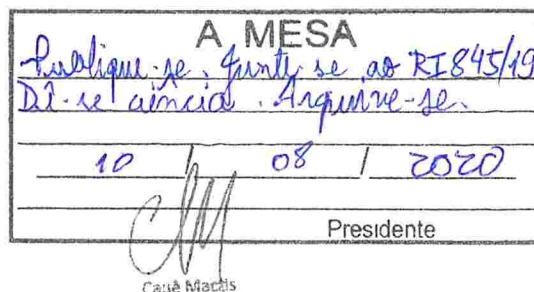 A MESA
Publique-se. Junte-se ao RI 845/19
Dê-se ciência. Arquive-se.
10 / 08 / 2020
Presidente
Cauê Macris